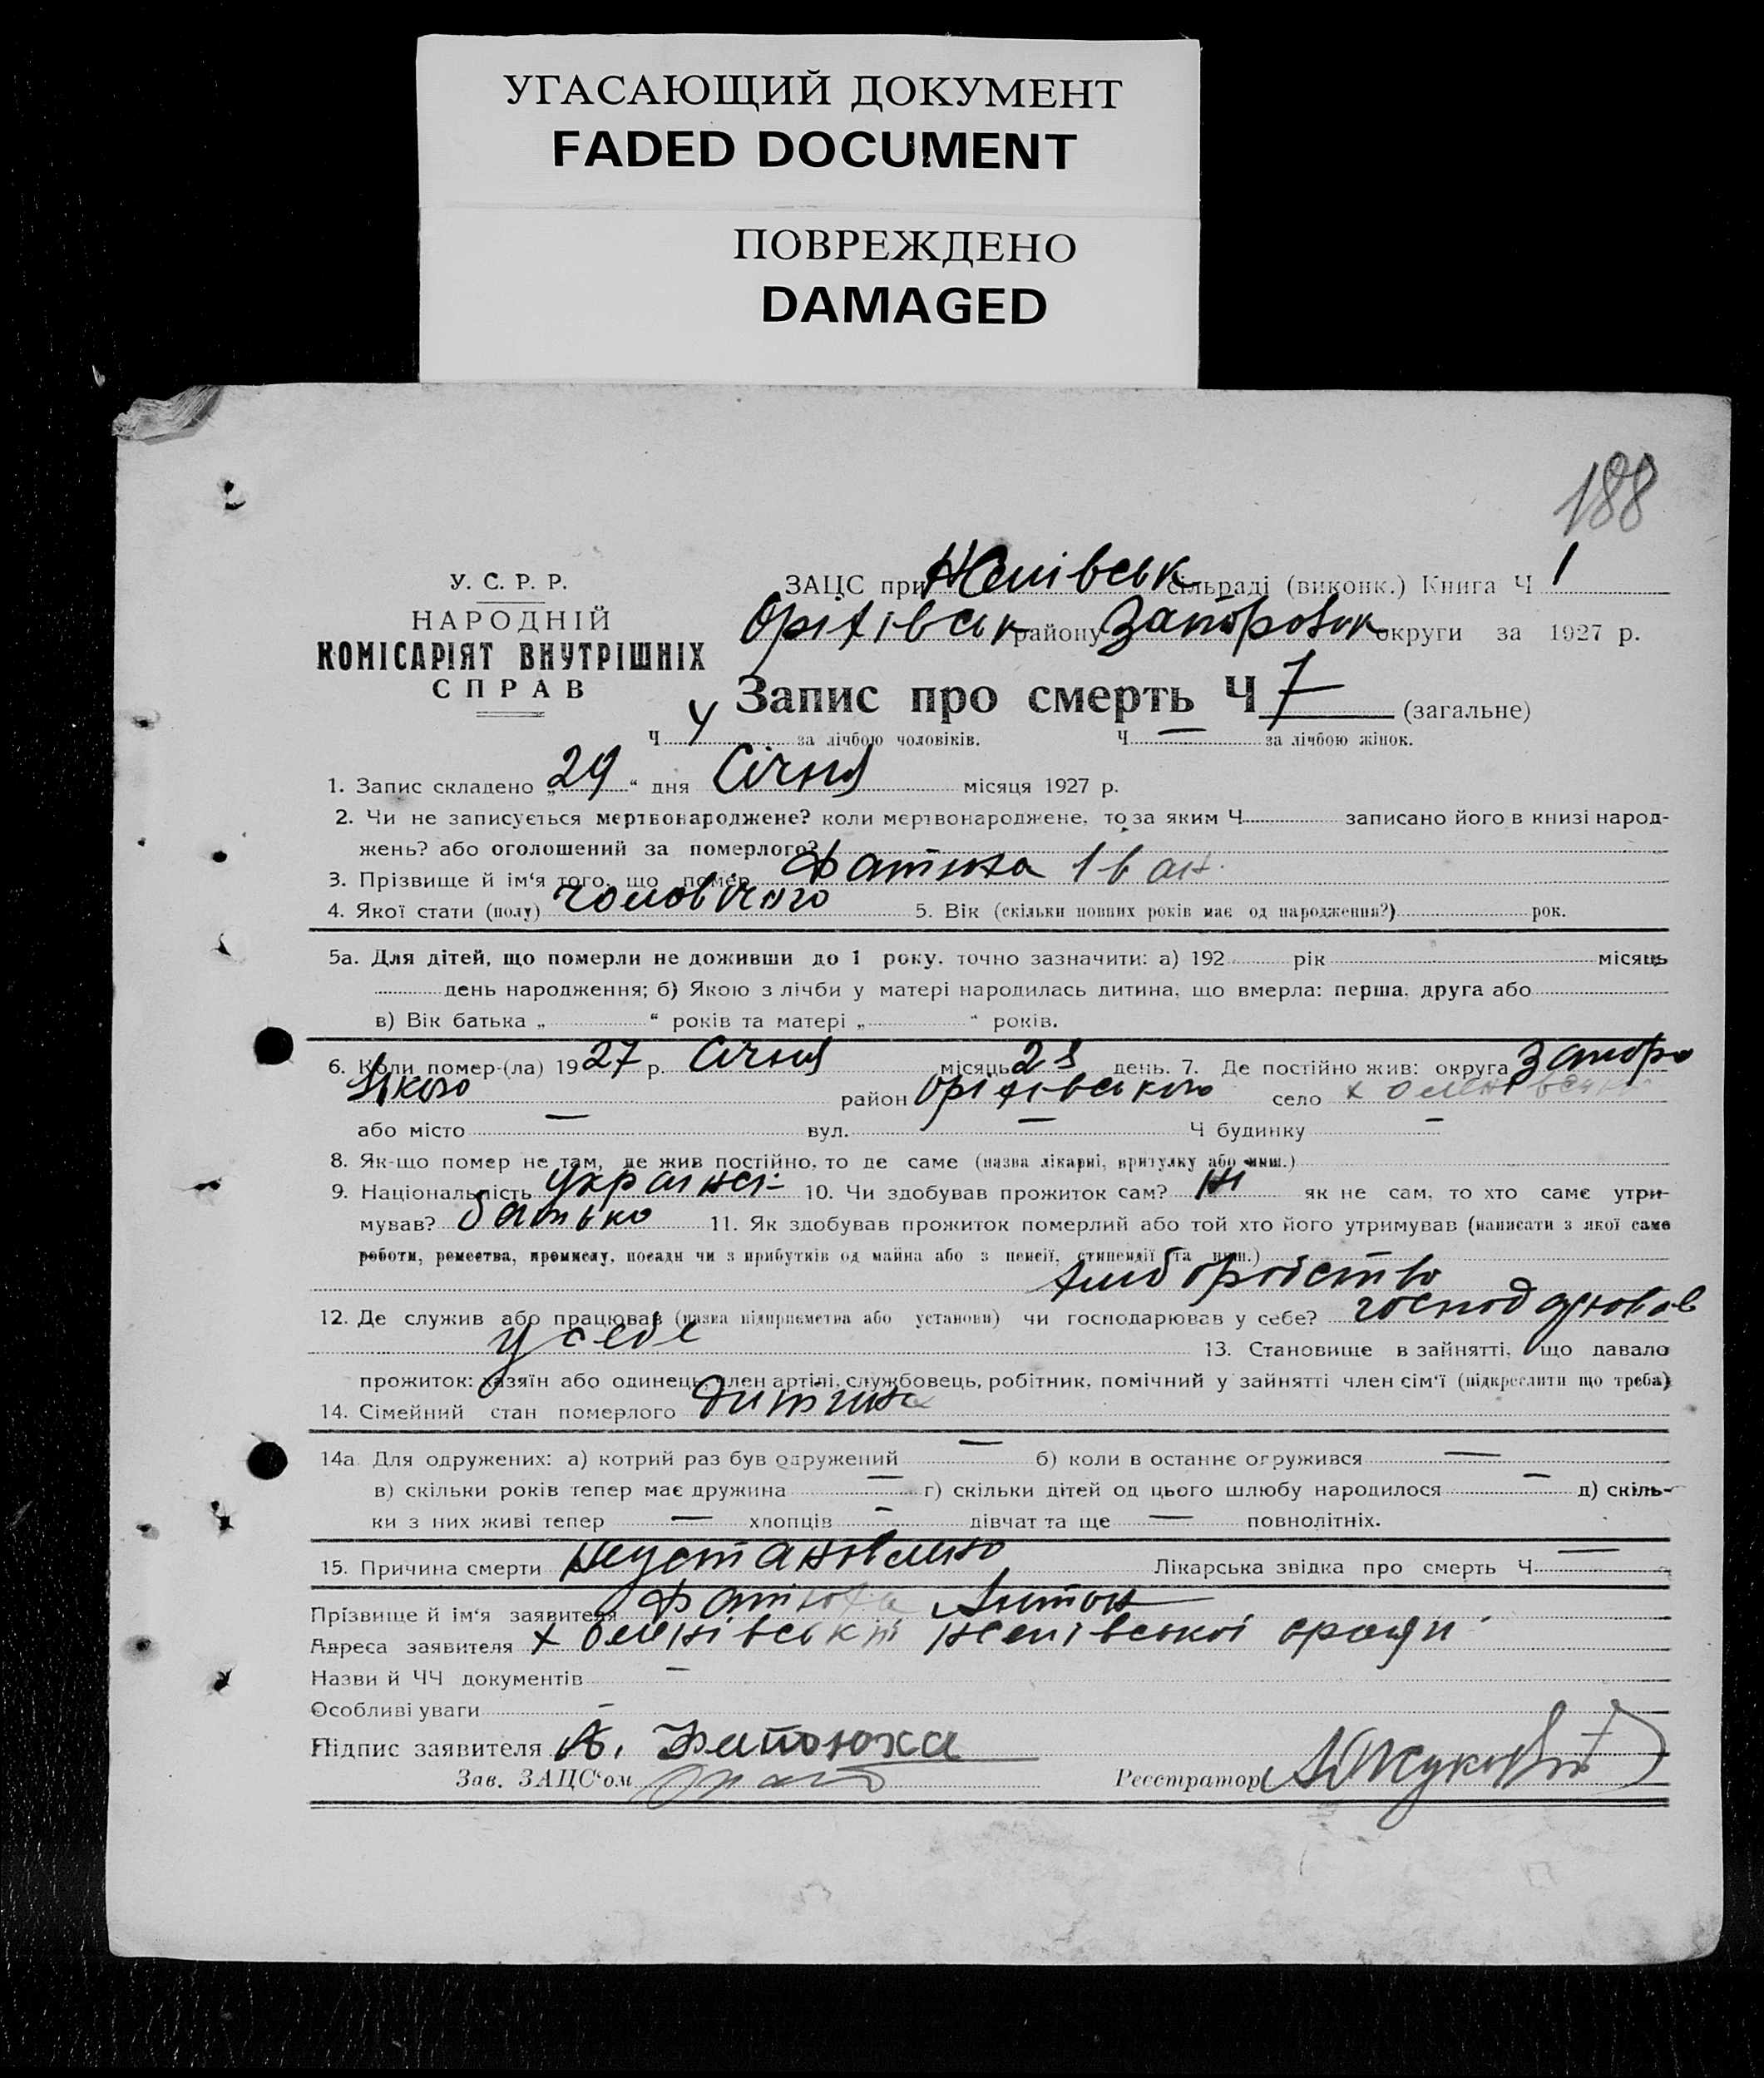 УГАСАЮЩИЙ ДОКУМЕНТ
FADED DOCUMENT
ПОВРЕЖДЕНО
DAMAGED
188
У. С. Р. Р.
НАРОДНІЙ
КОМІСАРІЯТ ВНУТРІШНІХ
СПРАВ
ЗАЦС при сільраді (виконк.) Книга Ч 1
Оріхівськ району Запорозьк округи за 1927 р.
Запис про смерть Ч 7 (загальне)
Ч 4 за лічбою чоловіків. Ч — за лічбою жінок.
1. Запис складено „29“ дня Січня місяця 1927 р.
2. Чи не записується мертвонароджене? коли мертвонароджене, то за яким Ч записано його в книзі народ-
жень? або оголошений за померлого?
3. Прізвище й ім‘я того, що помер Фатюха Іван
4. Якої стати (полу) чоловічого 5. Вік (скільки повних років має од народження?) рок.
5а. Для дітей, що померли не доживши до 1 року. точно зазначити: а) 192 рік місяць
день народження; б) Якою з лічби у матері народилась дитина, що вмерла: перша, друга або
в) Вік батька „ “ років та матері „ “ років.
6. Коли помер-(ла) 1927 р. Січня місяць день. 7. Де постійно жив: округа Запоро
зького район Оріхівського село
або місто — вул. — Ч будинку —
8. Як-що помер не там, де жив постійно, то де саме (назва лікарні, притулку або инш.)
9. Національність 10. Чи здобував прожиток сам? Ні як не сам, то хто саме утри-
мував? батько 11. Як здобував прожиток померлий або той хто його утримував (написати з якої саме
роботи, ремества, промислу, посади чи з прибутків од майна або з пенсії, стипендії та инш.)
хліборобство
12. Де служив або працював (назва підприємства або установи) чи господарював у себе? господарював
у себе 13. Становище в зайнятті, що давало
прожиток: хазяїн або одинець, член артілі, службовець, робітник, помічний у зайнятті член сім‘ї (підкреслити що треба)
14. Сімейний стан померлого дитина
14а Для одружених: а) котрий раз був одружений — б) коли в останнє одружився —
в) скільки років тепер має дружина — г) скільки дітей од цього шлюбу народилося — д) скіль-
ки з них живі тепер — хлопців — дівчат та ще — повнолітніх.
15. Причина смерти Неустановлено Лікарська звідка про смерть Ч —
Прізвище й ім‘я заявителя Фатюха Антон
Адреса заявителя
Назви й ЧЧ документів —
Особливі уваги —
Підпис заявителя А.
Зав. ЗАЦС‘ом
Реєстратор